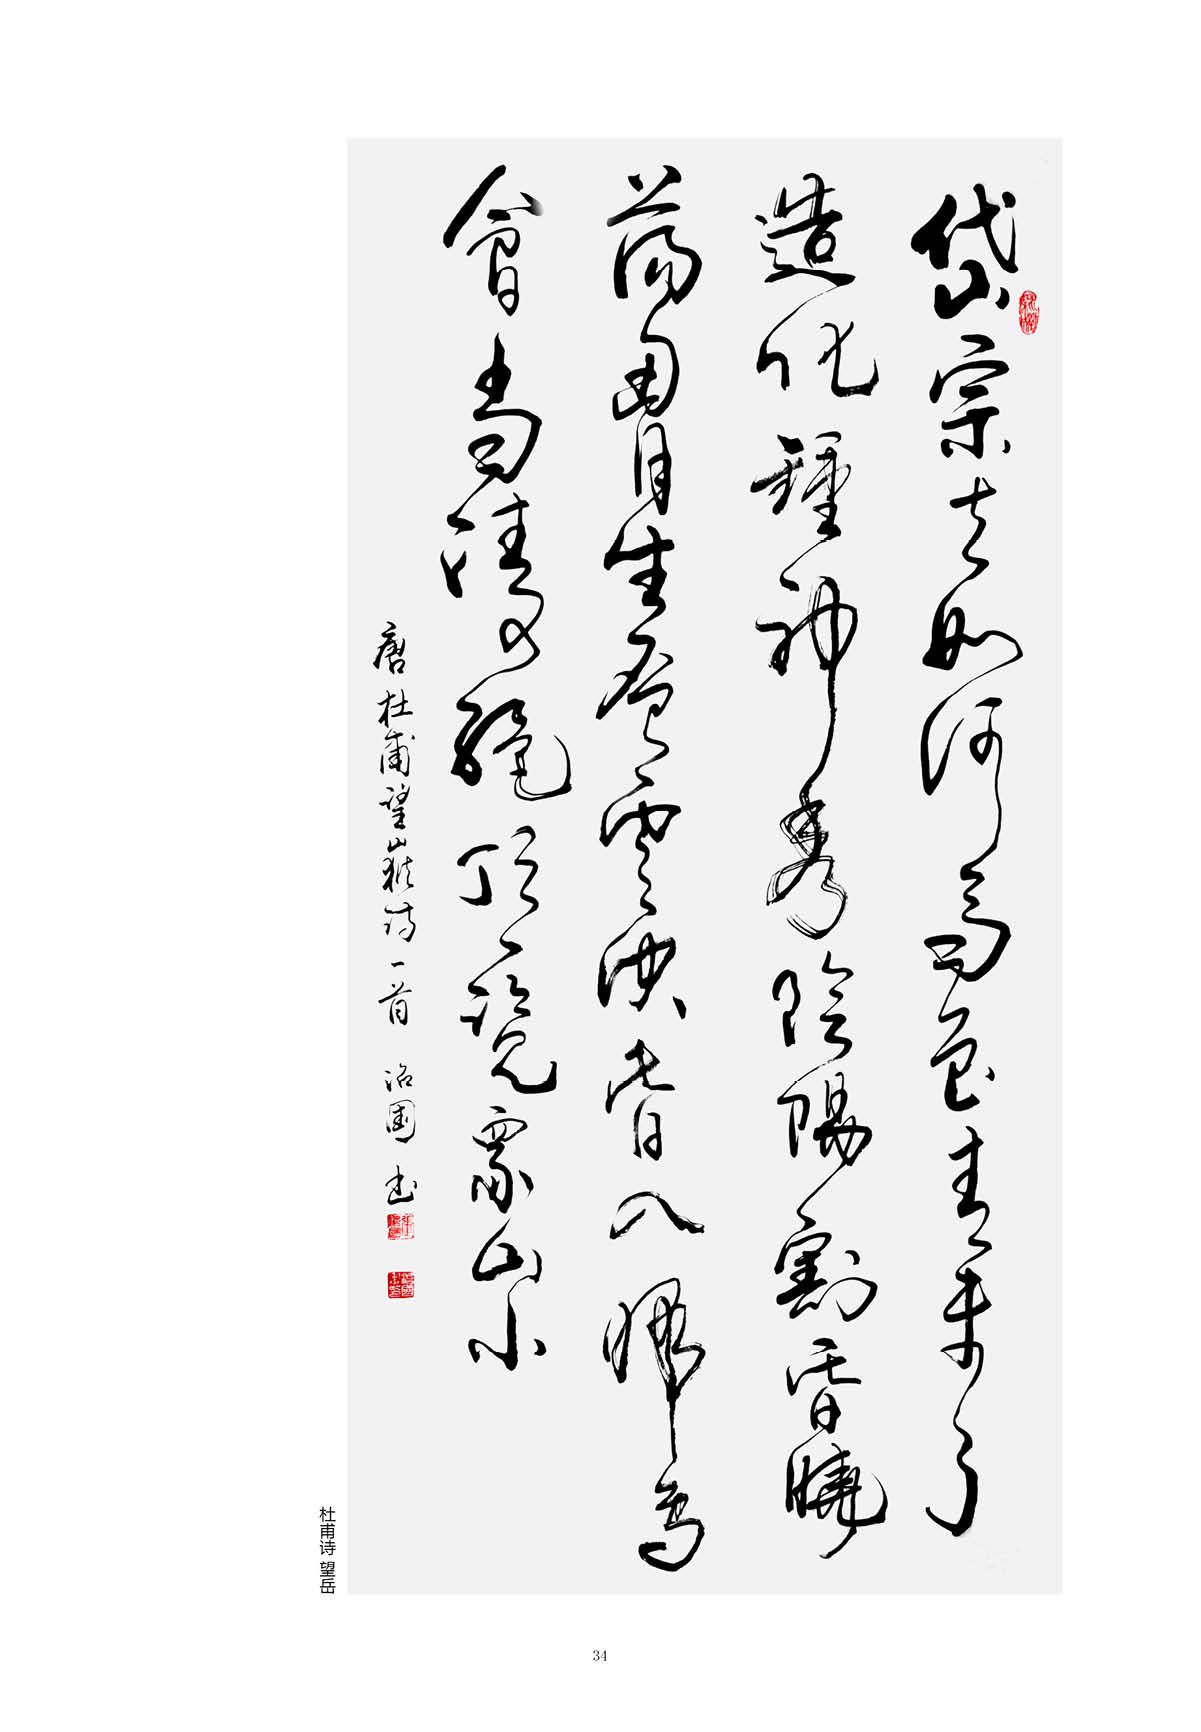 岱宗夫如何齊魯青未了
造化鍾神秀陰陽割昏曉
蕩胷生曾雲決眥入歸鳥
會當凌絕頂一覽眾山小
唐杜甫望嶽詩一首 治國書
杜甫诗 望岳
34